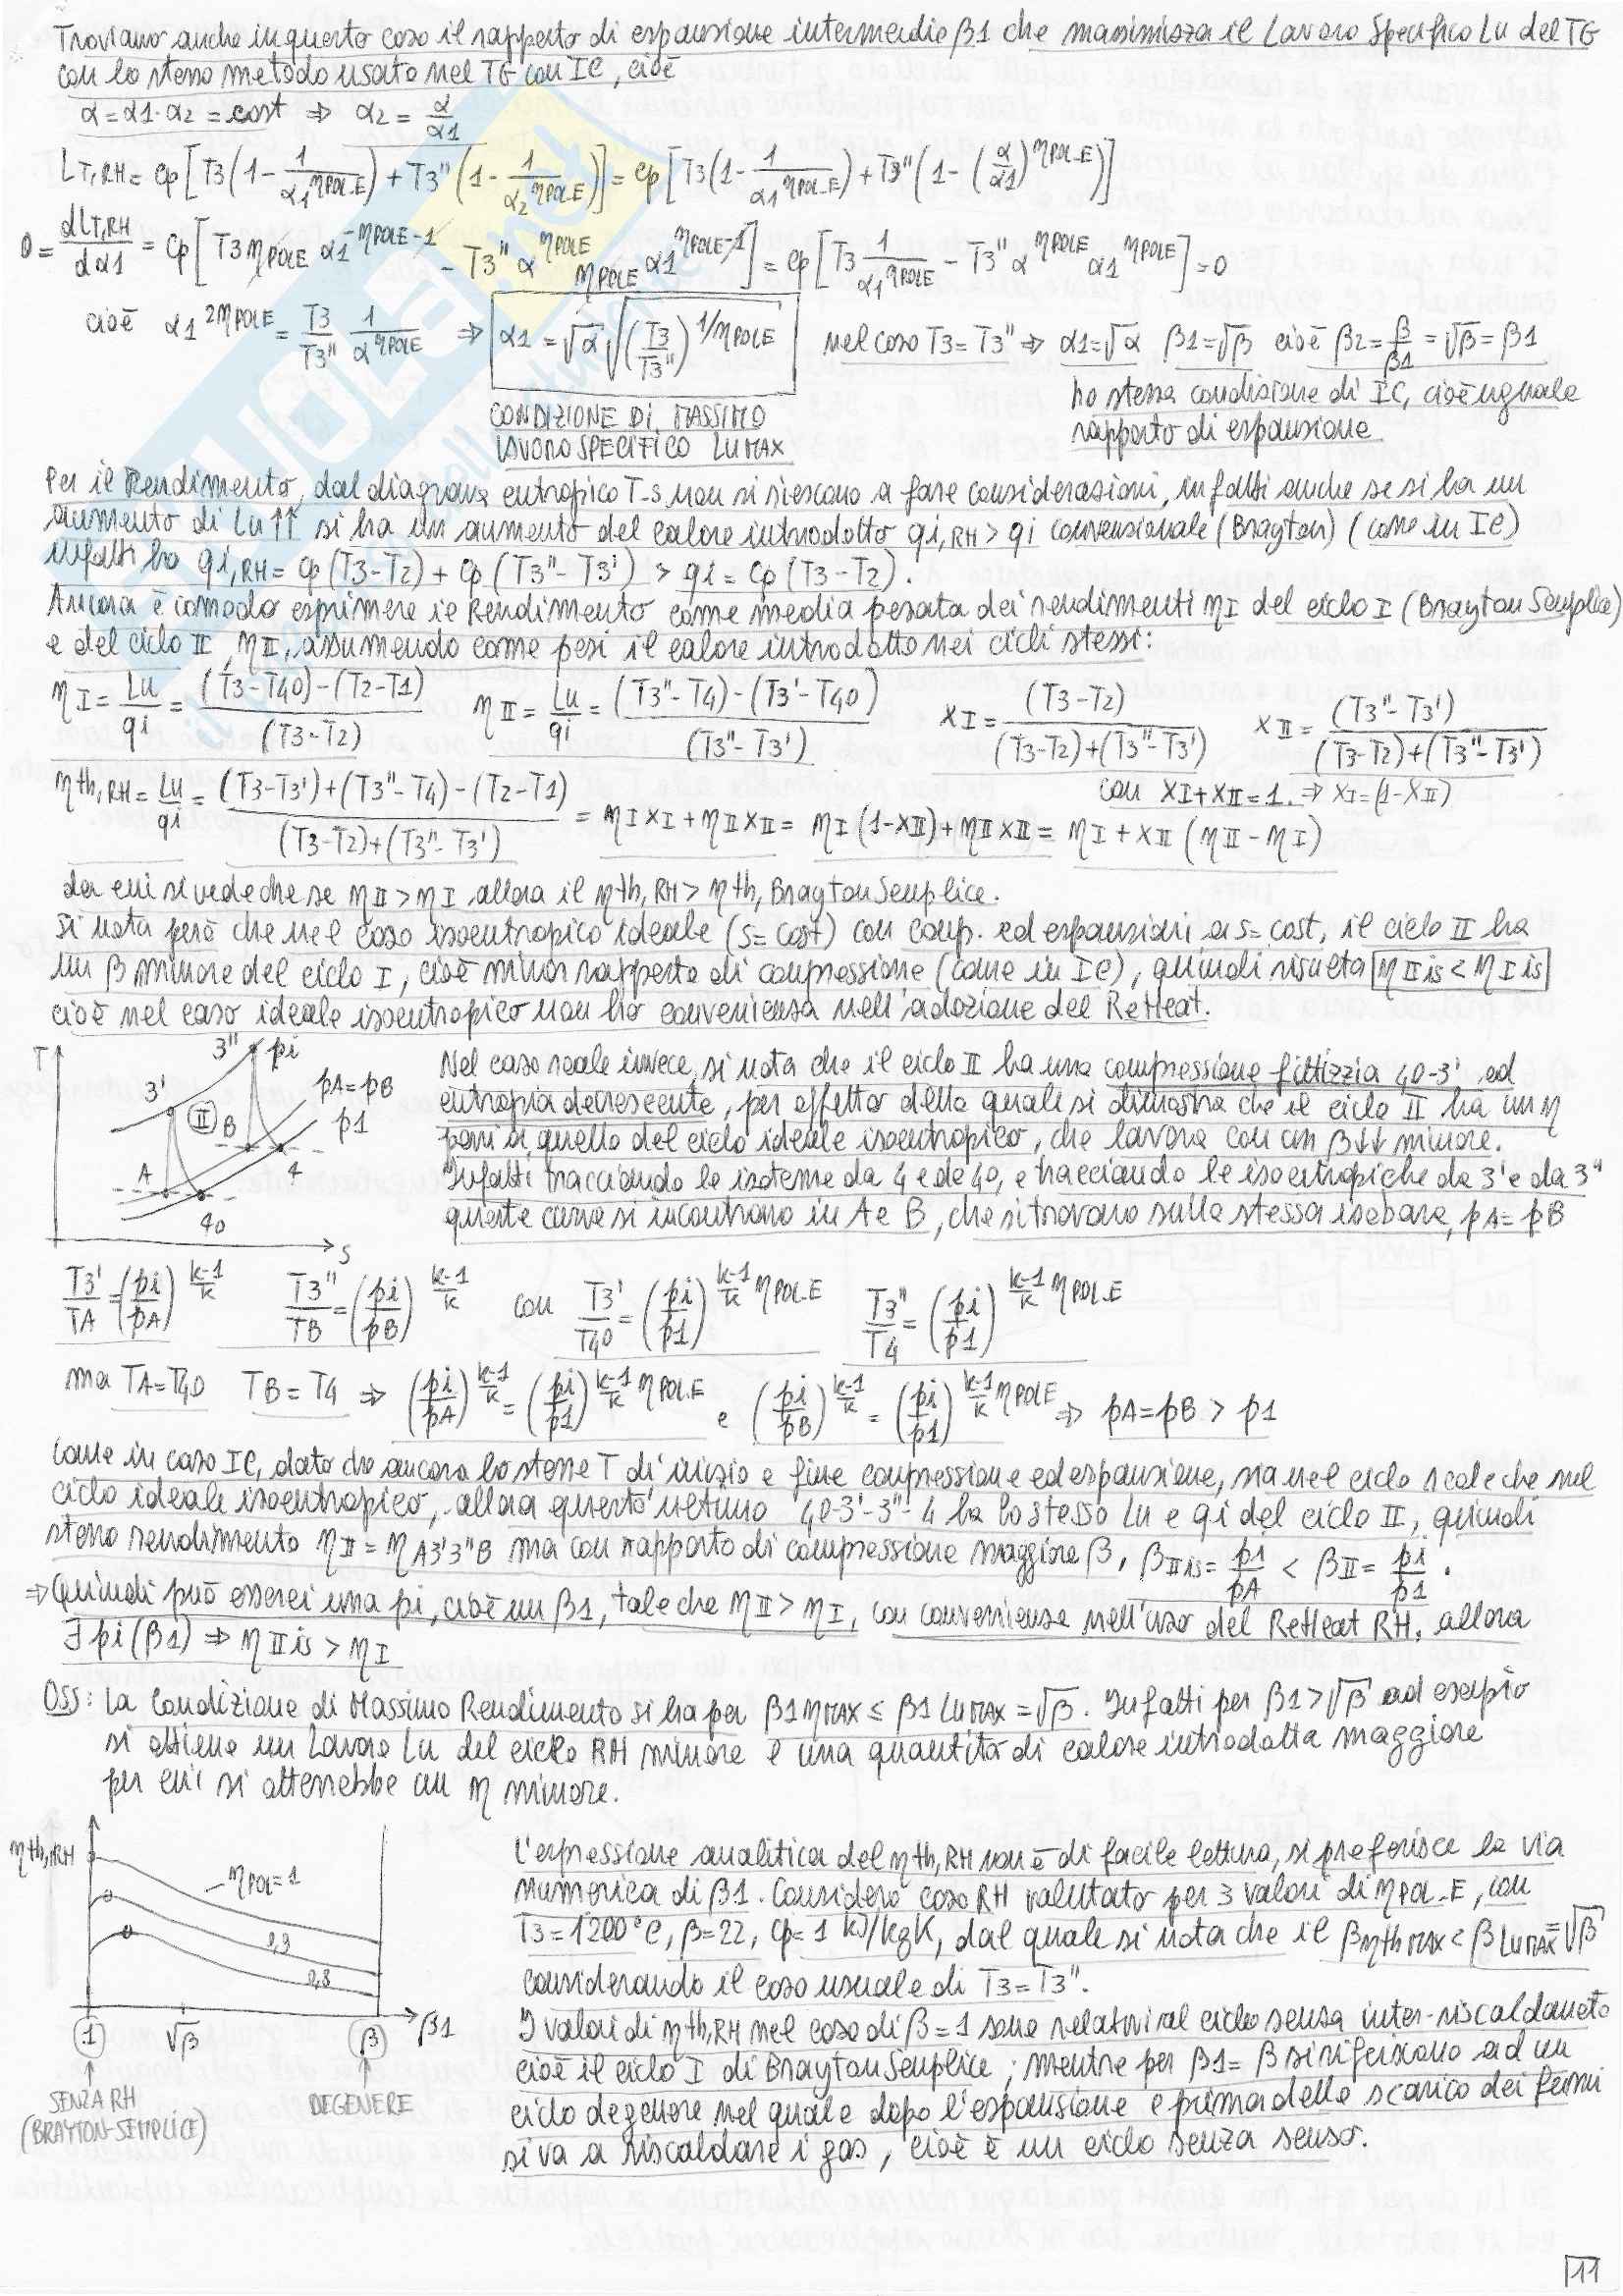 Troviamo anche in questo caso il rapporto di espansione intermedio β1 che massimizza il Lavoro Specifico Lu del TG
con lo stesso metodo usato nel TG con IC, cioè
α = α1·α2 = cost ⇒ α2 = α/α1
LT,RH = cp[T3(1 - 1/α1^ηPOL-E) + T3''(1 - 1/α2^ηPOL-E)] = cp[T3(1 - 1/α1^ηPOL-E) + T3''(1 - (α/α1)^ηPOL-E)]
0 = dLT,RH/dα1 = cp[T3 ηPOLE α1^(-ηPOLE-1) - T3'' α^ηPOLE ηPOLE α1^(ηPOLE-1)] = cp[T3 1/α1^ηPOLE - T3'' α^ηPOLE α1^ηPOLE] = 0
cioè α1^(2ηPOLE) = T3/T3'' 1/α^ηPOLE ⇒ α1 = √α √((T3/T3'')^(1/ηPOLE)) nel caso T3 = T3'' ⇒ α1 = √α β1 = √β cioè β2 = β/β1 = √β = β1
CONDIZIONE DI MASSIMO
LAVORO SPECIFICO LU MAX
ho stessa condizione di IC, cioè uguale
rapporto di espansione
Per il Rendimento, dal diagrama entropico T-s non si riescono a fare considerazioni, infatti anche se si ha un
aumento di Lu↑↑ si ha un aumento del calore introdotto qi,RH > qi convenzionale (Brayton) (come in IC)
infatti ho qi,RH = cp(T3-T2) + cp(T3''-T3') > qi = cp(T3-T2).
Ancora è comodo esprimere il Rendimento come media pesata dei rendimenti ηI del ciclo I (Brayton Semplice)
e del ciclo II, ηII, assumendo come pesi il calore introdotto nei cicli stessi:
ηI = Lu/qi = (T3-T40)-(T2-T1)/(T3-T2) ηII = Lu/qi = (T3''-T4)-(T3'-T40)/(T3''-T3') XI = (T3-T2)/(T3-T2)+(T3''-T3') XII = (T3''-T3')/(T3-T2)+(T3''-T3')
con XI+XII=1 ⇒ XI=(1-XII)
ηth,RH = Lu/qi = (T3-T3')+(T3''-T4)-(T2-T1)/(T3-T2)+(T3''-T3') = ηI XI + ηII XII = ηI(1-XII)+ηII XII = ηI + XII(ηII - ηI)
da cui si vede che se ηII > ηI allora il ηth,RH > ηth, Brayton Semplice.
Si nota però che nel caso isoentropico ideale (s=cost) con comp. ed espansioni a s=cost, il ciclo II ha
un β minore del ciclo I, cioè minor rapporto di compressione (come in IC), quindi risulta ηIIis < ηIis
cioè nel caso ideale isoentropico non ho convenienza nell'adozione del ReHeat.
T
3''
pi
3'
pA=pB
II
B
p1
A
4
40
S
Nel caso reale invece, si nota che il ciclo II ha una compressione fittizzia 40-3' ed
entropia decrescente, per effetto della quale si dimostra che il ciclo II ha un η
pari a quello del ciclo ideale isoentropico, che lavora con un β↓↓ minore.
Infatti tracciando le isoterme da 4 e da 40, e tracciando le isoentropiche da 3' e da 3''
queste curve si incontrano in A e B, che si trovano sulla stessa isobara, pA=pB
T3'/TA = (pi/pA)^(k-1/k) T3''/TB = (pi/pB)^(k-1/k) con T3'/T40 = (pi/p1)^(k-1/k ηPOL-E) T3''/T4 = (pi/p1)^(k-1/k ηPOL-E)
ma TA=T40 TB=T4 ⇒ (pi/pA)^(k-1/k) = (pi/p1)^(k-1/k ηPOLE) e (pi/pB)^(k-1/k) = (pi/p1)^(k-1/k ηPOLE) ⇒ pA=pB > p1
Come in caso IC, dato che ancora ho stesse T di inizio e fine compressione ed espansione, sia nel ciclo reale che nel
ciclo ideale isoentropico, allora questo ultimo 40-3'-3''-4 ha lo stesso Lu e qi del ciclo II, quindi
stesso rendimento ηII = ηA3'3''B ma con rapporto di compressione maggiore β, βIIis = p1/pA < βII = pi/p1.
⇒ Quindi può esserci una pi, cioè un β1, tale che ηII > ηI, con convenienza nell'uso del ReHeat RH, allora
∃ pi(β1) ⇒ ηIIis > ηI
Oss: La Condizione di Massimo Rendimento si ha per β1ηMAX ≤ β1LuMAX = √β. Infatti per β1>√β ad esempio
si ottiene un Lavoro Lu del ciclo RH minore e una quantità di calore introdotta maggiore
per cui si otterrebbe un η minore.
ηth,RH
ηPOL=1
0,9
0,8
1
√β
β
β1
SENZA RH
(BRAYTON-SEMPLICE)
DEGENERE
L'espressione analitica del ηth,RH non è di facile lettura, si preferisce la via
numerica di β1. Considero caso RH valutato per 3 valori di ηPOL-E, con
T3=1200°C, β=22, cp=1 kJ/kgK, dal quale si nota che il βηthMAX < βLuMAX=√β
considerando il caso usuale di T3=T3''.
I valori di ηth,RH nel caso di β=1 sono relativi al ciclo senza inter-riscaldamento
cioè il ciclo I di Brayton Semplice; mentre per β1=β si riferiscono ad un
ciclo degenere nel quale dopo l'espansione e prima dello scarico dei fumi
si va a riscaldare i gas, cioè è un ciclo senza senso.
11